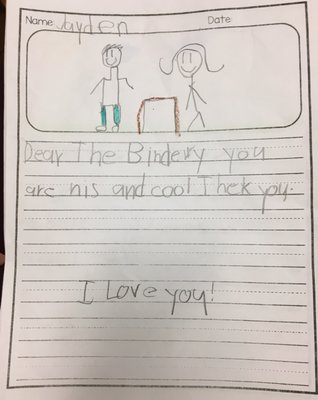 Name: Jayden Date:
Dear The Bindery you
are nis and cool Thek you
I Love you!